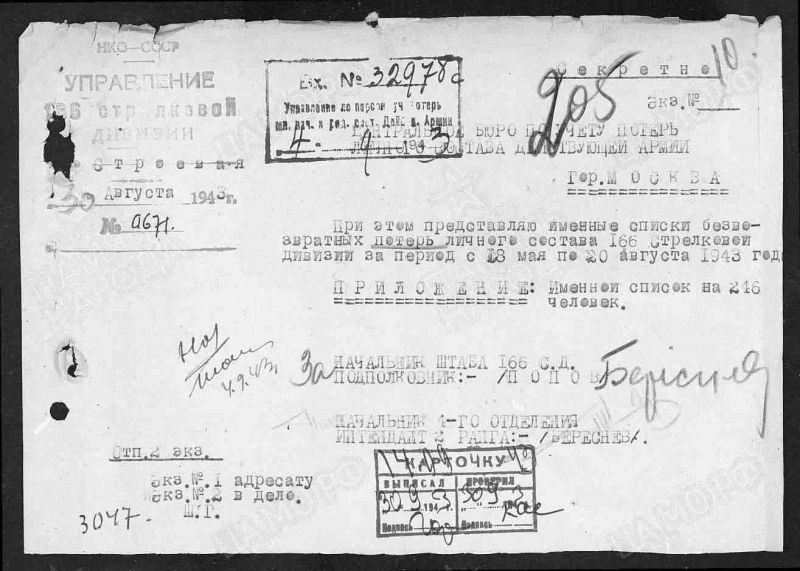 НКО-СССР
УПРАВЛЕНИЕ
166 стрелковой
ДИВИЗИИ
Строевая
30 Августа 1943г.
№ 0671.
Вх. № 32978с
Управление по персон. уч. потерь
мл. нач. и ряд. сост. Дейс в. Армии
4 9 1943
Секретно
10
205
Экз.№
ЦЕНТРАЛЬНОЕ БЮРО ПО УЧЕТУ ПОТЕРЬ
ЛИЧНОГО СОСТАВА ДЕЙСТВУЮЩЕЙ АРМИИ
Гор.МОСКВА
При этом представляю именные списки безво-
звратных потерь личного состава 166 Стрелковой
дивизии за период с 18 мая по 20 августа 1943 год
ПРИЛОЖЕНИЕ: Именной список на 246
человек.
4.9.43
За НАЧАЛЬНИК ШТАБА 166 С.Д.
ПОДПОЛКОВНИК:- /ПОПОВ
НАЧАЛЬНИК 4-ГО ОТДЕЛЕНИЯ
ИНТЕНДАНТ 2 РАНГА:- /БЕРЕСНЕВ/.
Отп.2 экз.
Экз.№.1 адресату
Экз.№.2 в дело.
Ш.Г.
3047.
КАРТОЧКУ
ВЫПИСАЛ ПРОВЕРИЛ
30 9 1943 30 9 3
Подпись Подпись